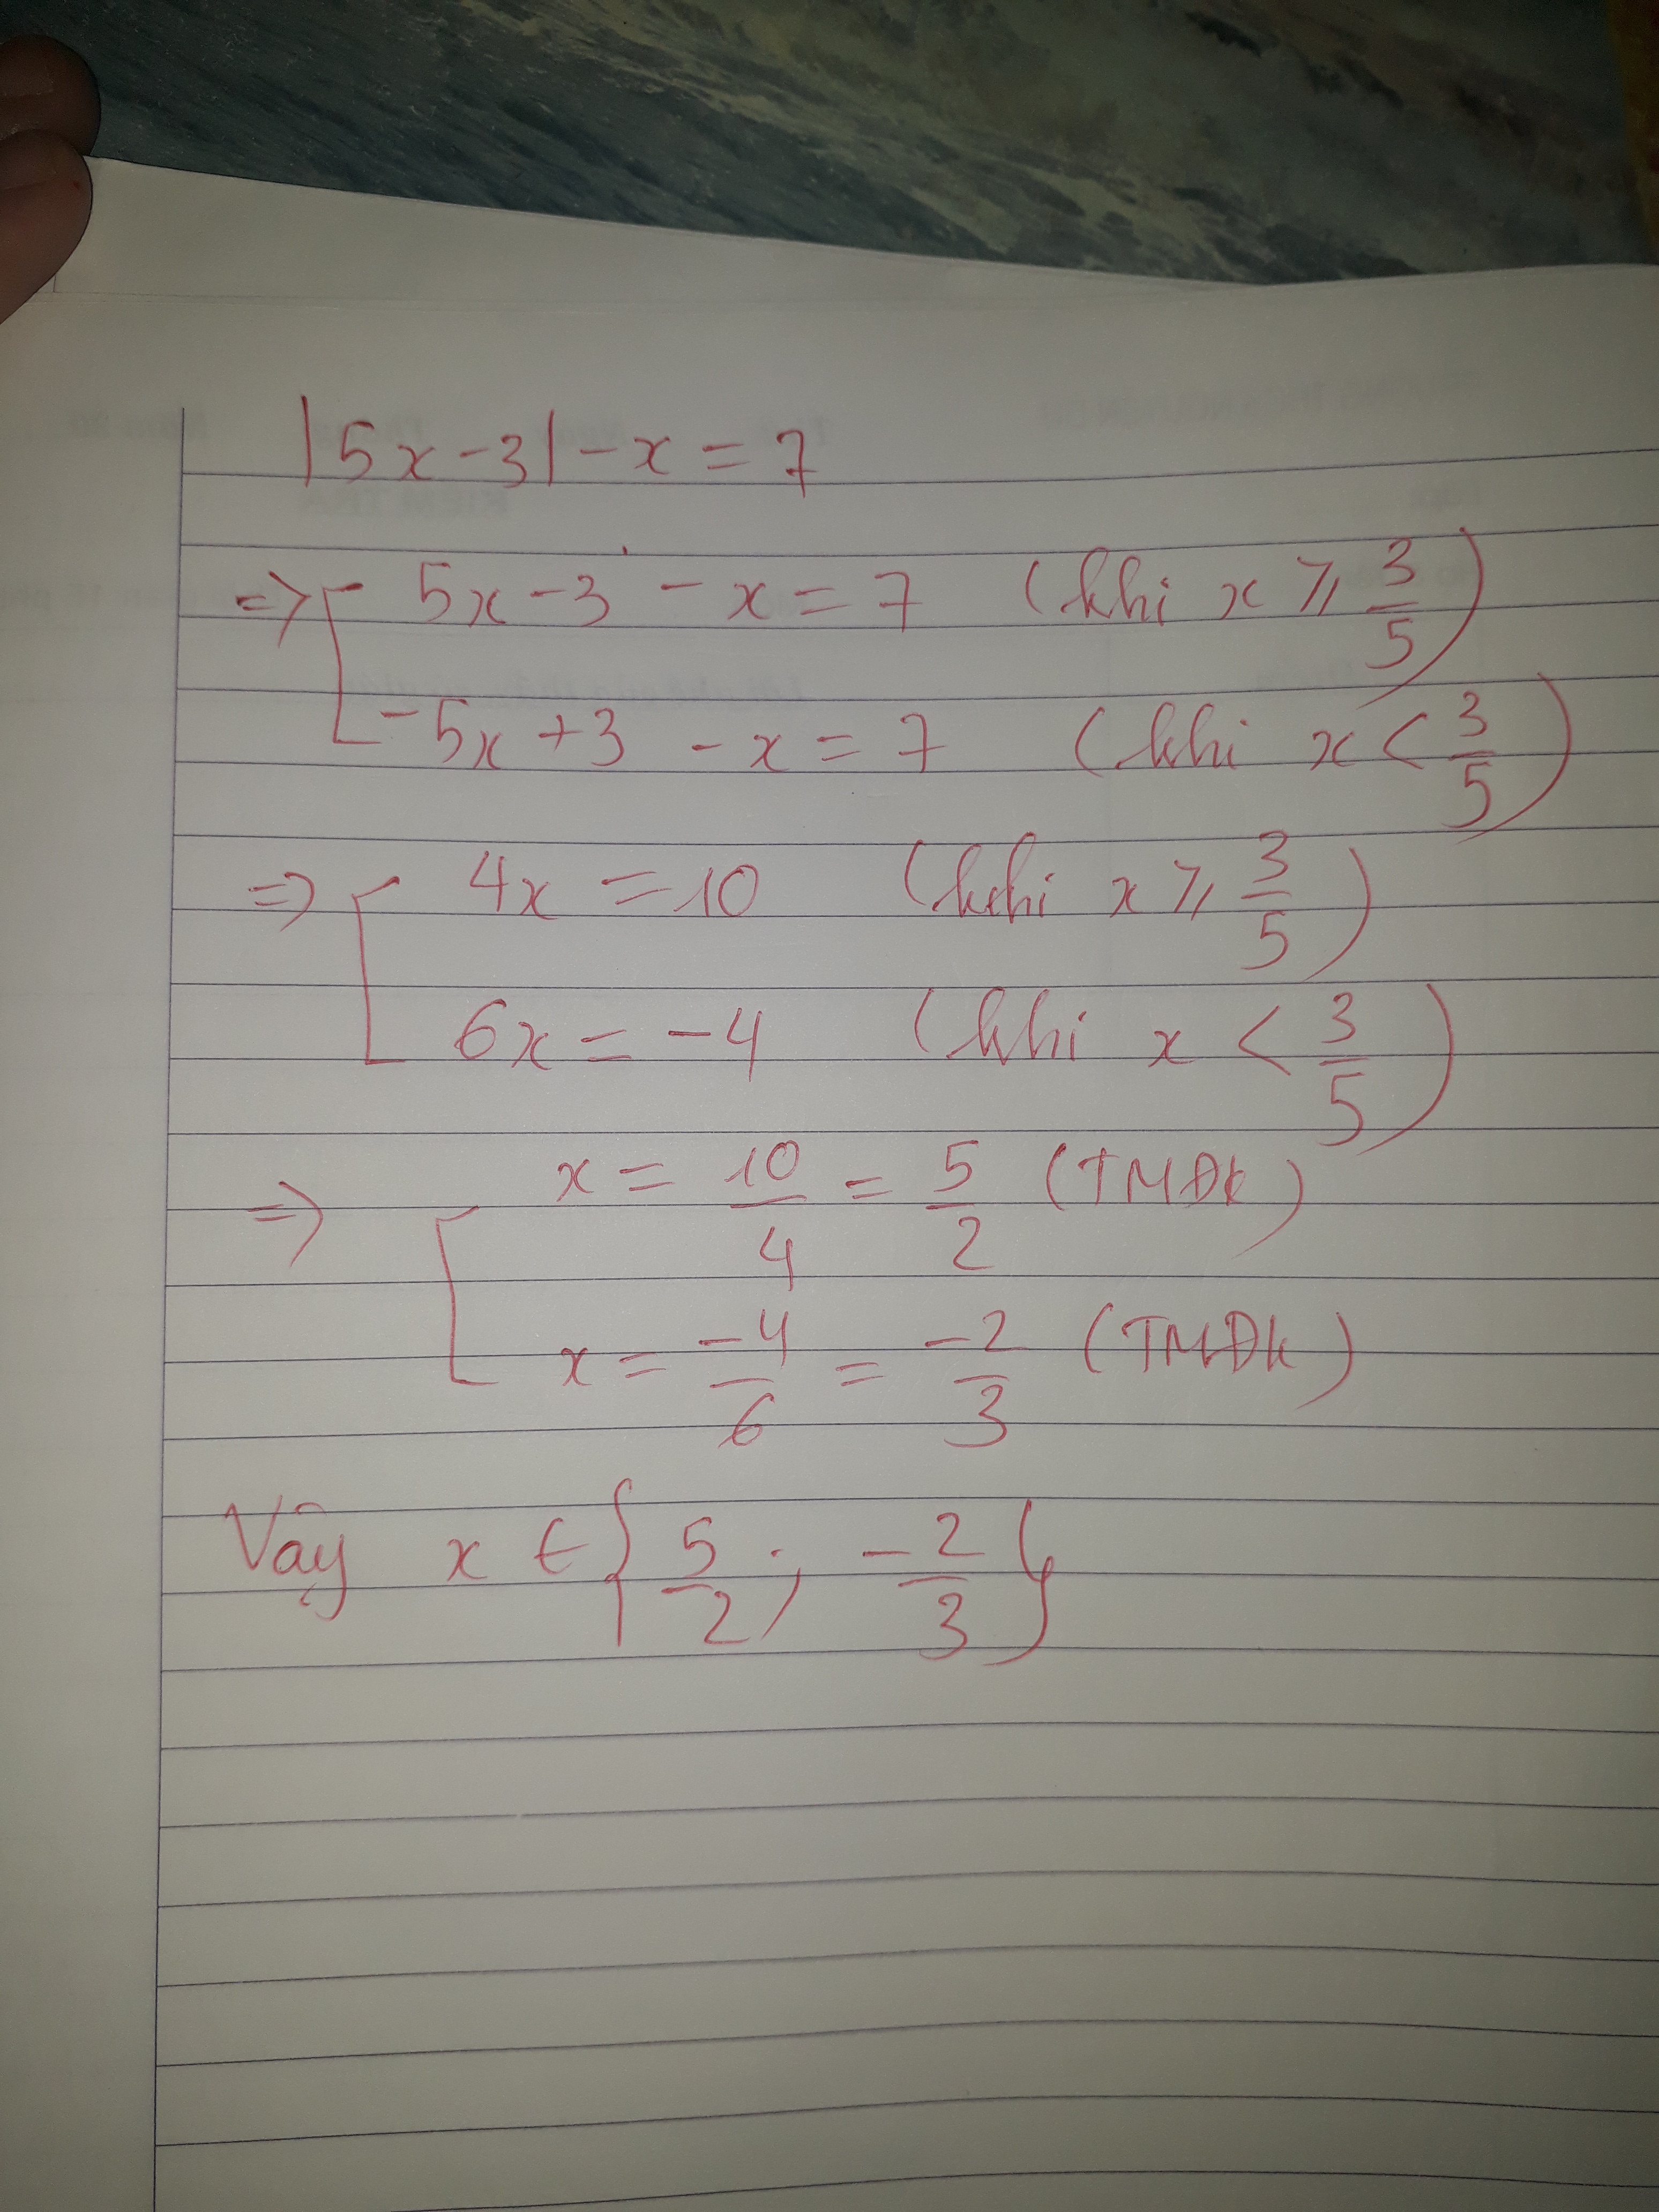 |5x-3|-x=7
=> [ 5x-3-x=7 (khi x ⩾ 3/5)
-5x+3-x=7 (khi x < 3/5)
=> [ 4x=10 (khi x ⩾ 3/5)
6x=-4 (khi x < 3/5)
=> [ x = 10/4 = 5/2 (TMĐK)
x = -4/6 = -2/3 (TMĐK)
Vậy x ∈ {5/2; -2/3}